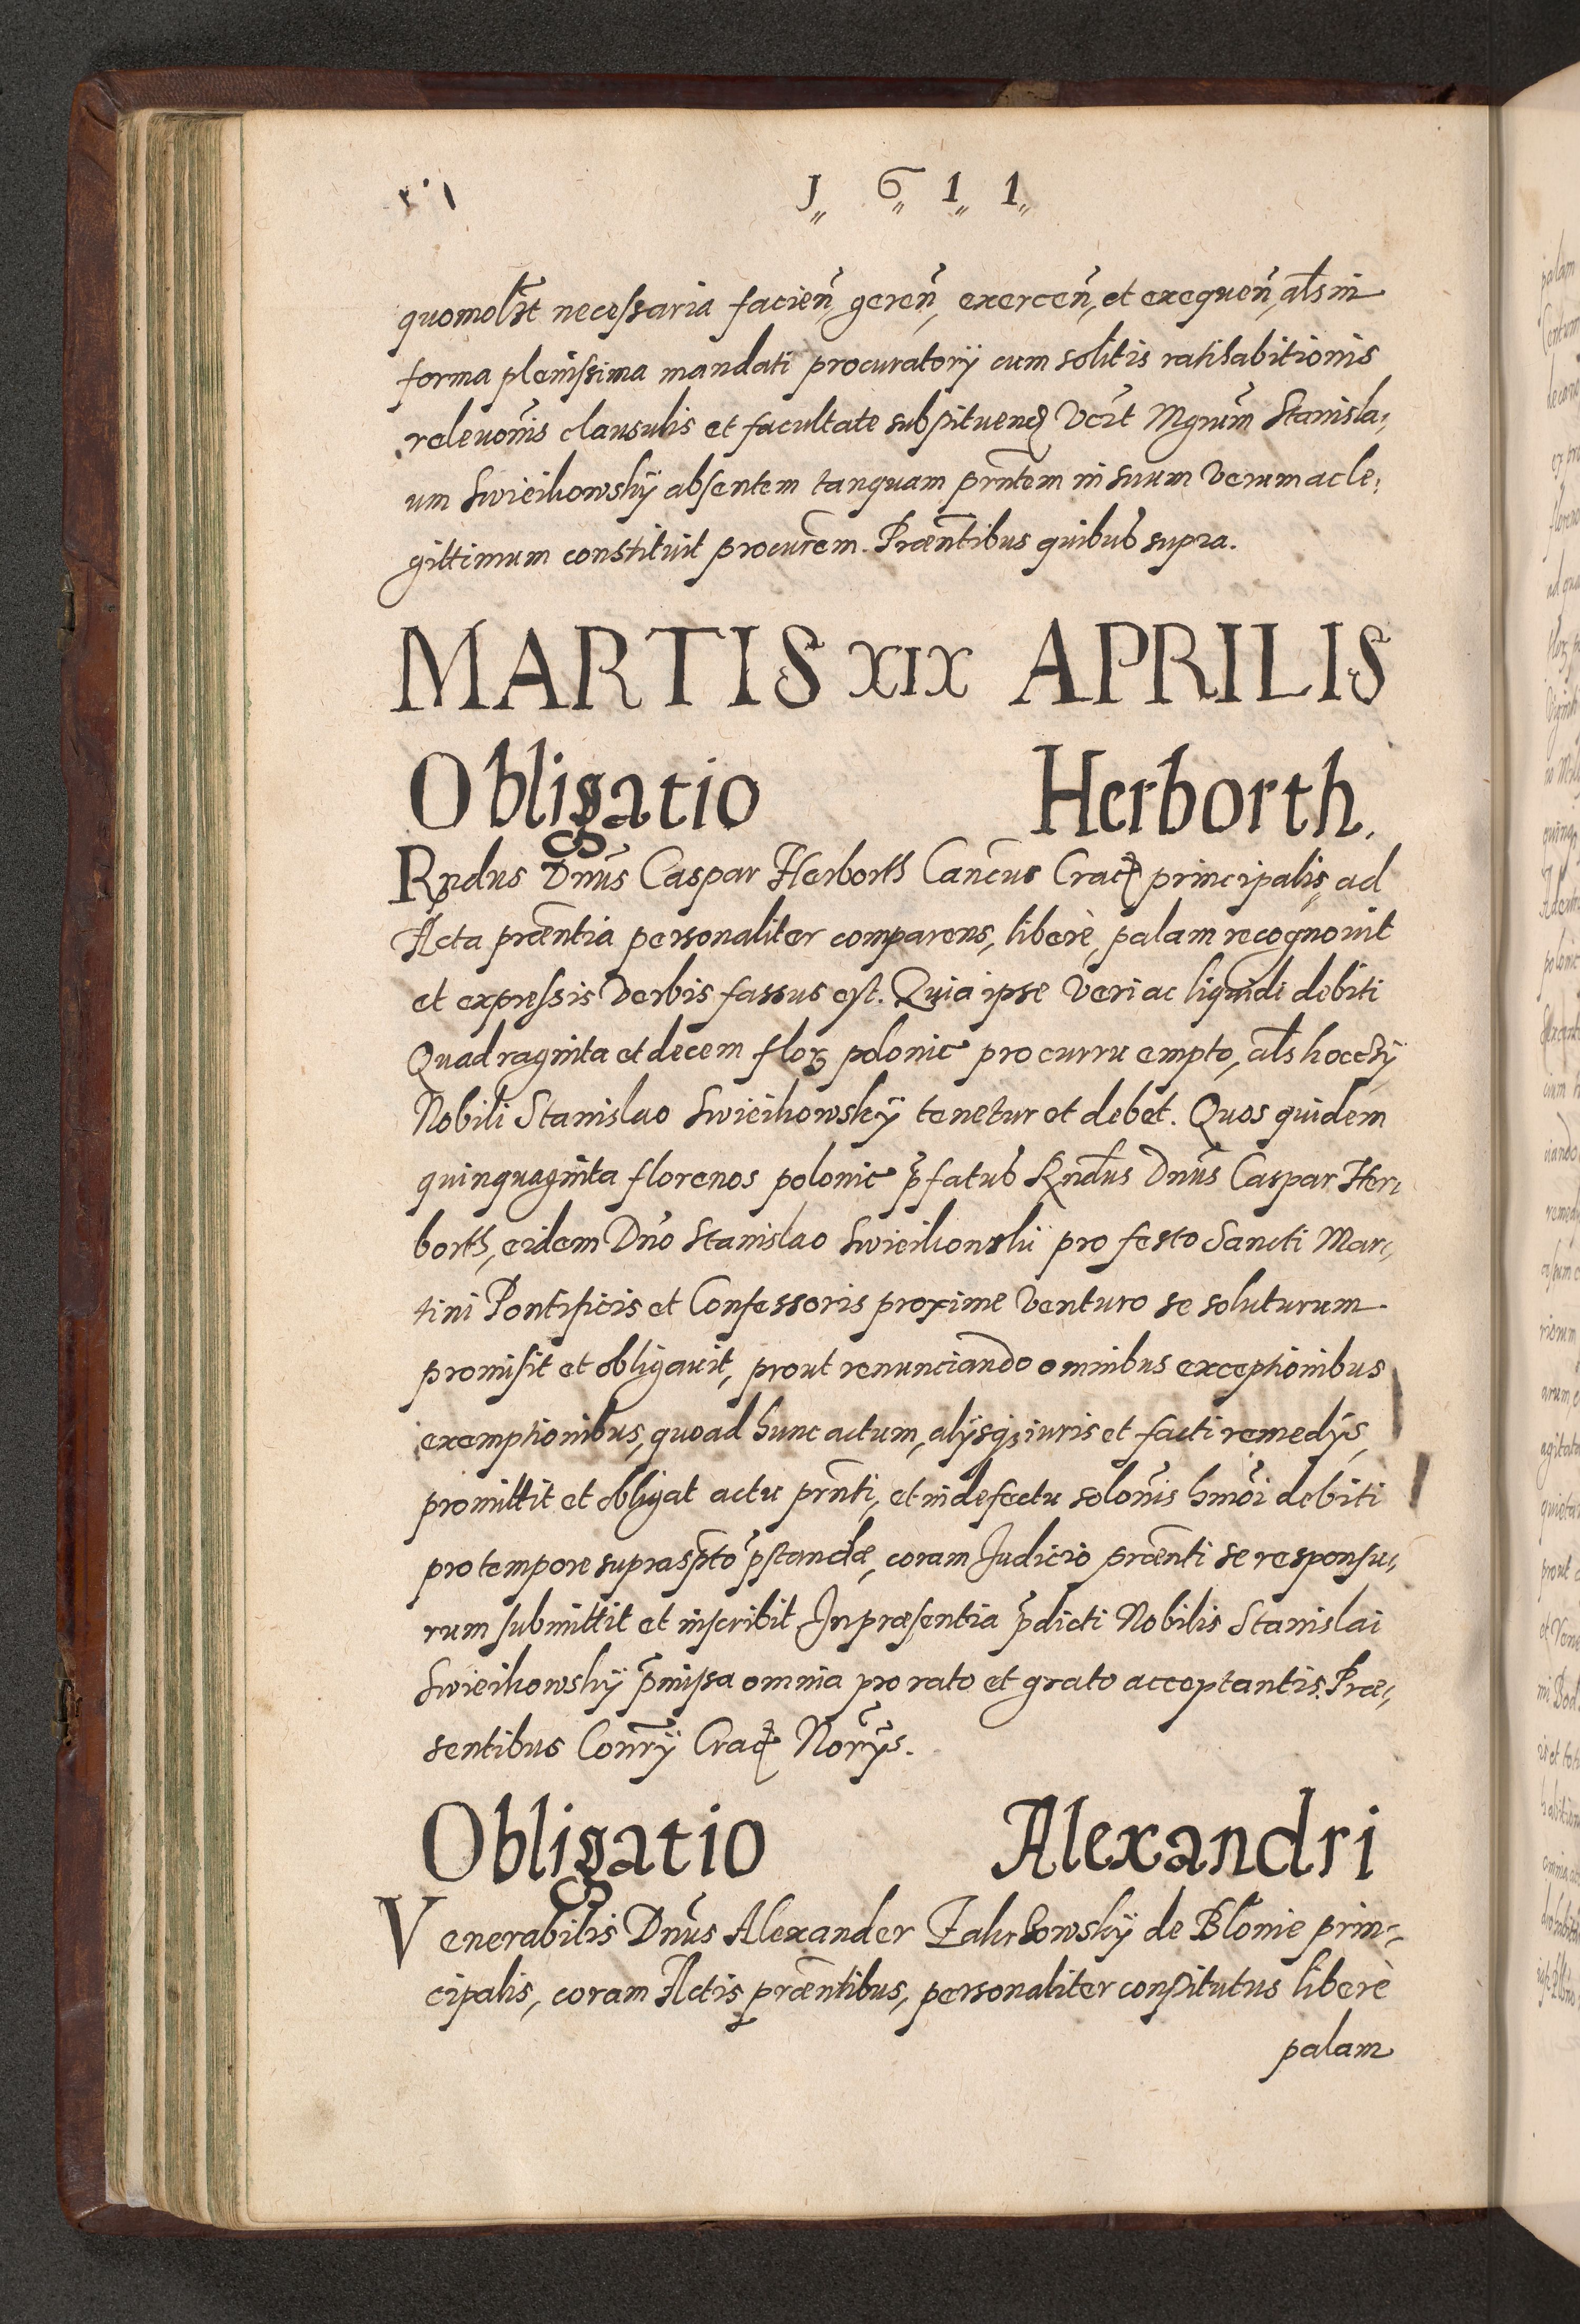 J„ 6„ 1„ 1„
quomolt necessaria facien̄ geren̄, exercen̄, et exequen̄, als in
forma plenissima mandati procuratorÿ cum solitis ratihabitionis
releuōnis clausulis et facultate substituend Vczt Mgnum̄ Stanisla,
um Swieikowskÿ absentem tanquam prn̄tem in suum verum ac le,
gittimum constituit procurem̄. Præn̄tibus quibus supra.
MARTIS XIX APRILIS
Obligatio Herborth.
Rndus Dnūs Caspar Herborth Cancūs Crac principalis, ad
Acta præn̄tia personaliter comparens, liberè, palam recognouit
et expressis verbis fassus est. Quia ipse veri ac liquidi debiti
Quadraginta et decem flor polonic pro curru empto, als
Nobili Stanislao Swieikowskÿ tenetur et debet. Quos quidem
quinquaginta florenos polonic p̄fatus Rndus Dnūs Caspar Her,
borth, eidem Dnō Stanislao Swieikowskÿ pro festo Sancti Mar,
tini Pontificis et Confessoris proxime venturo se soluturum
promisit et obligauit, prout renunciando omnibus exceptionibus
exemptionibus, quoad hunc actum, alÿsq; iuris et facti remedÿs,
promittit et obligat actu prn̄ti, et in defectu solonīs hmōi debiti
pro tempore suprasp̄to p̄standæ, coram Judicio præn̄ti se responsu,
rum submittit et inscribit Jn præsentia p̄dicti Nobilis Stanislai
Swieikowskÿ p̄missa omnia pro rato et grato acceptantis. Præ,
sentibus Conrȳ Crac Norȳs.
Obligatio Alexandri
Venerabilis Dnūs Alexander de Blonie prin,
cipalis, coram Actis præn̄tibus, personaliter constitutus liberè
palam